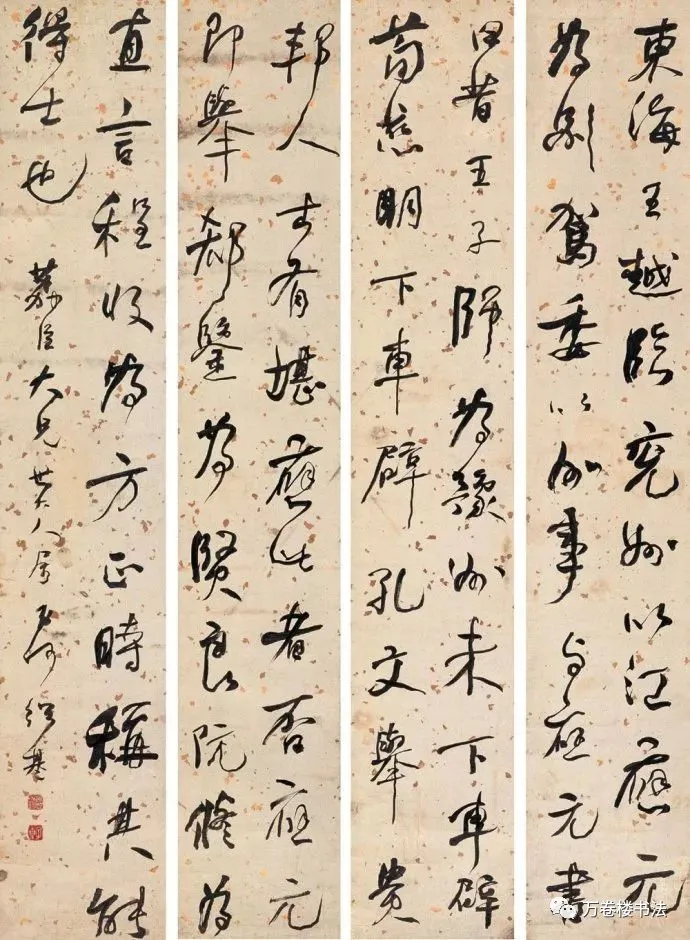 東海王越臨兖州以江應元
為別駕委以州事与應元書
曰昔王子師為豫州未下車辟
荀慈明下車辟孔文舉貴
邦人士有堪應此者否應元
即舉郗鑒為賢良阮脩為
直言程收為方正時稱其能
得士也
大兄世大人屬 何紹基
万卷楼书法